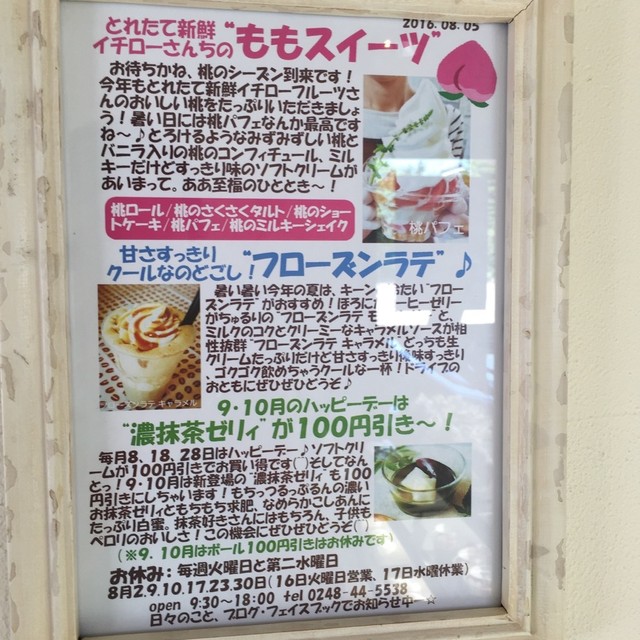 2016.08.05
とれたて新鮮
イチローさんちの"ももスイーツ"
お待ちかね、桃のシーズン到来です！
今年もとれたて新鮮イチローフルーツさ
んのおいしい桃をたっぷりいただきましょ
う！暑い日には桃パフェなんか最高です
ね～♪とろけるようなみずみずしい桃と
バニラ入りの桃のコンフィチュール、ミル
キーだけどすっきり味のソフトクリームが
あいまって。ああ至福のひととき～！
桃パフェ
桃ロール/桃のさくさくタルト/桃のショー
トケーキ/桃パフェ/桃のミルキーシェイク
甘さすっきり
クールなのどごし！"フローズンラテ"♪
暑い暑い今年の夏は、キーン たい"フロー
ズンラテ"がおすすめ！ほろに ーヒーゼリー
がちゅるりの"フローズンラテ と、
ミルクのコクとクリーミーなキャラメルソースが相
性抜群"フローズンラテ キャラメル"どっちも生
クリームたっぷりだけど甘さすっきり後味すっきり
、ゴクゴク飲めちゃうクールな一杯！ドライブの
おともにぜひぜひどうぞ♪
ズンラテ キャラメル
9・10月のハッピーデーは
"濃抹茶ゼリィ"が100円引き～！
毎月8、18、28日はハッピーデー♪ソフトクリ
ームが100円引きでお買い得です(^^)そしてなん
とっ！9・10月は新登場の"濃抹茶ゼリィ"も100
円引きにしちゃいます！もちっつるっぷるんの濃い
お抹茶ゼリィともちもち求肥、なめらかこしあんに
たっぷり白蜜。抹茶好きさんにはもちろん、子供も
ペロリのおいしさ！この機会にぜひぜひどうぞ(^^)
(※9、10月はボール100円引きはお休みです)
お休み：毎週火曜日と第二水曜日
8月2.9.10.17.23.30日(16日火曜日営業、17日水曜休業)
open 9:30～18:00 tel 0248-44-5538
日々のこと、ブログ・フェイスブックでお知らせ中―☆